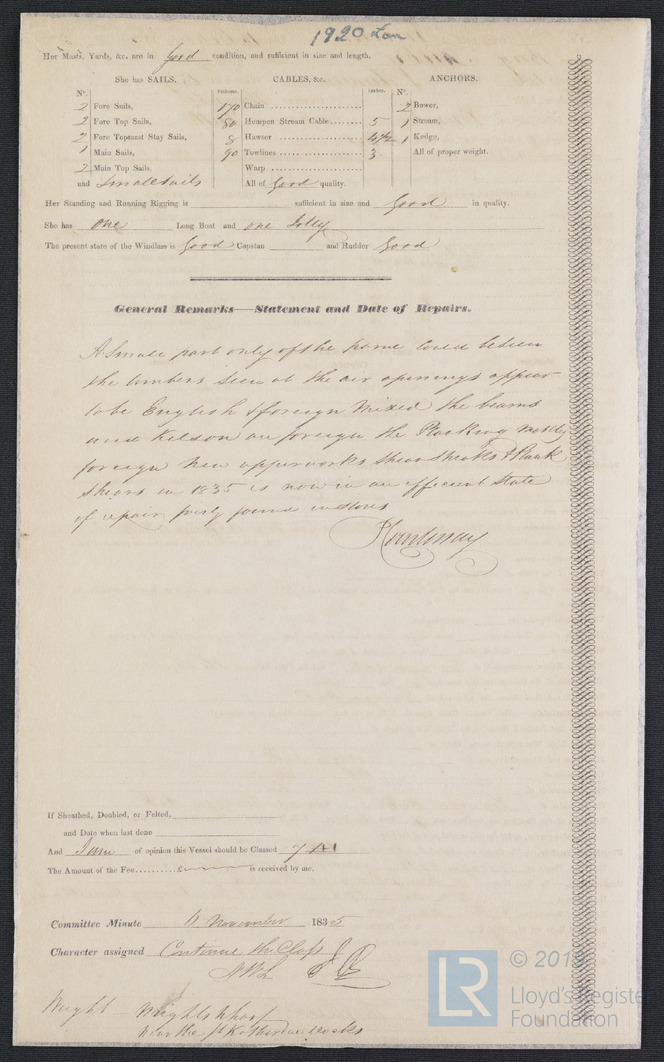 1920 Lon
Her Masts, Yards, &c. are in Good condition, and sufficient in size and length.
She has SAILS. CABLES, &c. ANCHORS.
N°. Fathoms. Inches. N°.
2 Fore Sails, 170 Chain 2 Bower,
2 Fore Top Sails, 80 Hempen Stream Cable 5 1 Stream,
2 Fore Topmast Stay Sails, 8 Hawser 4½ 1 Kedge,
1 Main Sails, 90 Towlines 3 All of proper weight.
2 Main Top Sails, Warp
and Small sails All of Good quality.
Her Standing and Running Rigging is sufficient in size and Good in quality.
She has one Long Boat and one Jolly
The present state of the Windlass is Good Capstan and Rudder Good
General Remarks—Statement and Date of Repairs.
A Small part only of the frame could be seen
the timbers seen at the air openings appear
to be English & foreign Mixed the beams
and Kelson are foreign the Planking mostly
foreign New upperworks Shearstreaks & Plank
Shears in 1835 is now in an efficient State
of repair fairly found in stores
If Sheathed, Doubled, or Felted,
and Date when last done
And I am of opinion this Vessel should be Classed 7 A1
The Amount of the Fee is received by me.
Committee Minute 6 November 1835
Character assigned Continue the Class
Wright – Wrights Wharf
Nr the St Katherine Docks
© 2019
LR
Lloyd's Register
Foundation